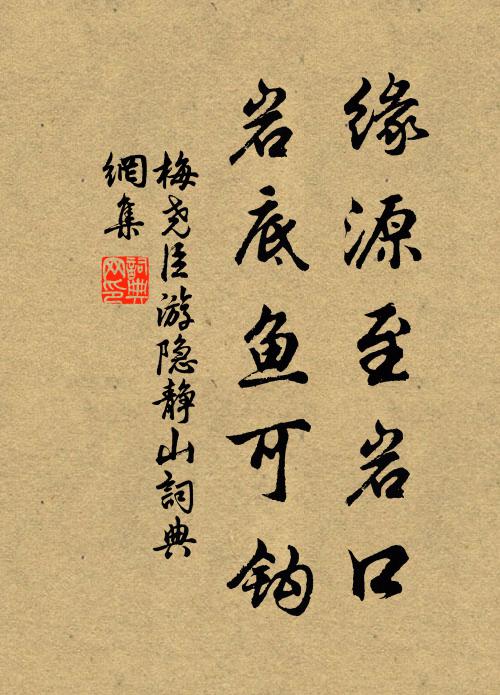 缘源至岩口
岩底鱼可钩
梅尧臣游隐静山詞典
網集
詞典
网印